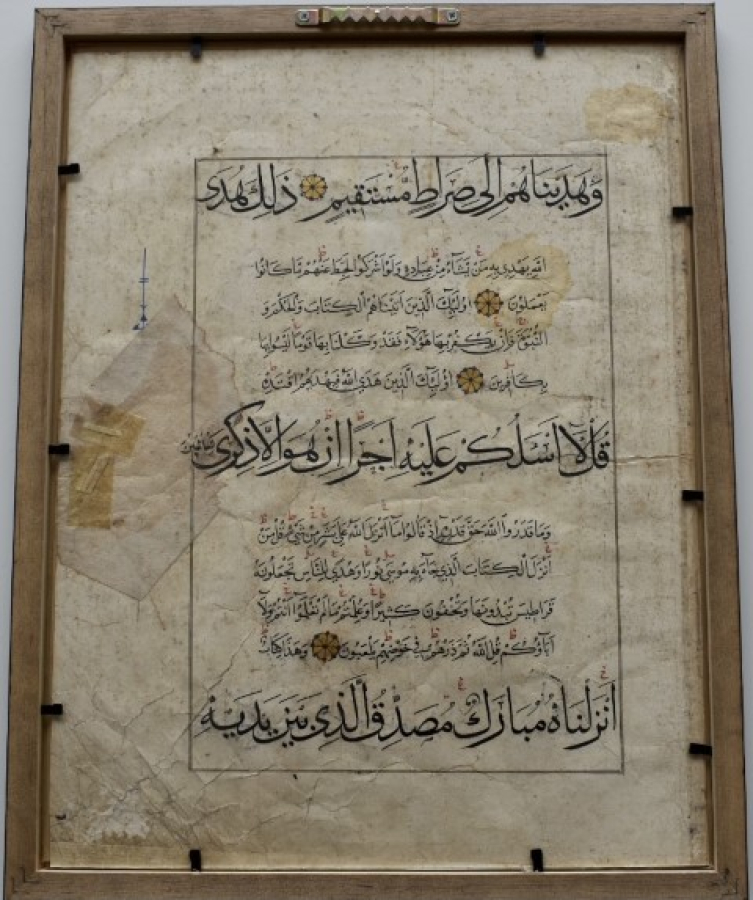 وَهَدَيْنَاهُمْ إِلَى صِرَاطٍ مُسْتَقِيمٍ ذَلِكَ هُدَى
اللهِ يَهْدِي بِهِ مَنْ يَشَاءُ مِنْ عِبَادِهِ وَلَوْ أَشْرَكُوا لَحَبِطَ عَنْهُمْ مَا كَانُوا
يَعْمَلُونَ أُولَئِكَ الَّذِينَ آتَيْنَاهُمُ الْكِتَابَ وَالْحُكْمَ وَ
النُّبُوَّةَ فَإِنْ يَكْفُرْ بِهَا هَؤُلَاءِ فَقَدْ وَكَّلْنَا بِهَا قَوْمًا لَيْسُوا بِهَا
بِكَافِرِينَ أُولَئِكَ الَّذِينَ هَدَى اللهُ فَبِهُدَاهُمُ اقْتَدِهْ
قُلْ لَا أَسْأَلُكُمْ عَلَيْهِ أَجْرًا إِنْ هُوَ إِلَّا ذِكْرَى لِلْعَالَمِينَ
وَمَا قَدَرُوا اللهَ حَقَّ قَدْرِهِ إِذْ قَالُوا مَا أَنْزَلَ اللهُ عَلَى بَشَرٍ مِنْ شَيْءٍ قُلْ مَنْ
أَنْزَلَ الْكِتَابَ الَّذِي جَاءَ بِهِ مُوسَى نُورًا وَهُدًى لِلنَّاسِ تَجْعَلُونَهُ
قَرَاطِيسَ تُبْدُونَهَا وَتُخْفُونَ كَثِيرًا وَعُلِّمْتُمْ مَا لَمْ تَعْلَمُوا أَنْتُمْ وَلَا
آبَاؤُكُمْ قُلِ اللهُ ثُمَّ ذَرْهُمْ فِي خَوْضِهِمْ يَلْعَبُونَ وَهَذَا كِتَابٌ
أَنْزَلْنَاهُ مُبَارَكٌ مُصَدِّقُ الَّذِي بَيْنَ يَدَيْهِ